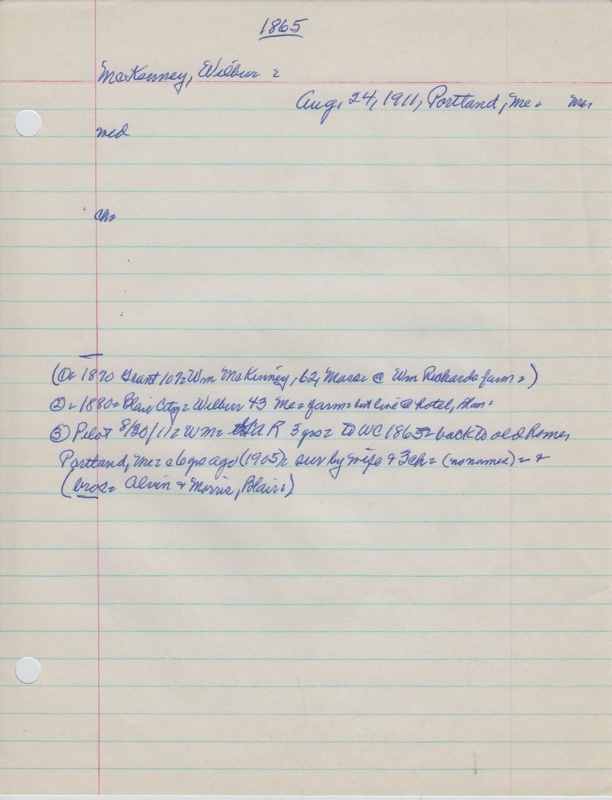 1865
McKenney, Wilbur =
Aug. 24, 1911, Portland, Me= Me=
md
ch=
(① 1870 Grant 107= Wm McKinney, 62, Mass= @ Wm Richards farm=)
② = 1880= Blair City= Wilbur 43 Me= farm= but live @ hotel, Blair=
③ Pilot 8/30/11= WM= R 3 yrs= to WC 1865= back to old home,
Portland, Me= 6 yrs ago (1905)= sur by wife & 3 ch= (no names)= &
(bros= Alvin & Morris, Blair=)